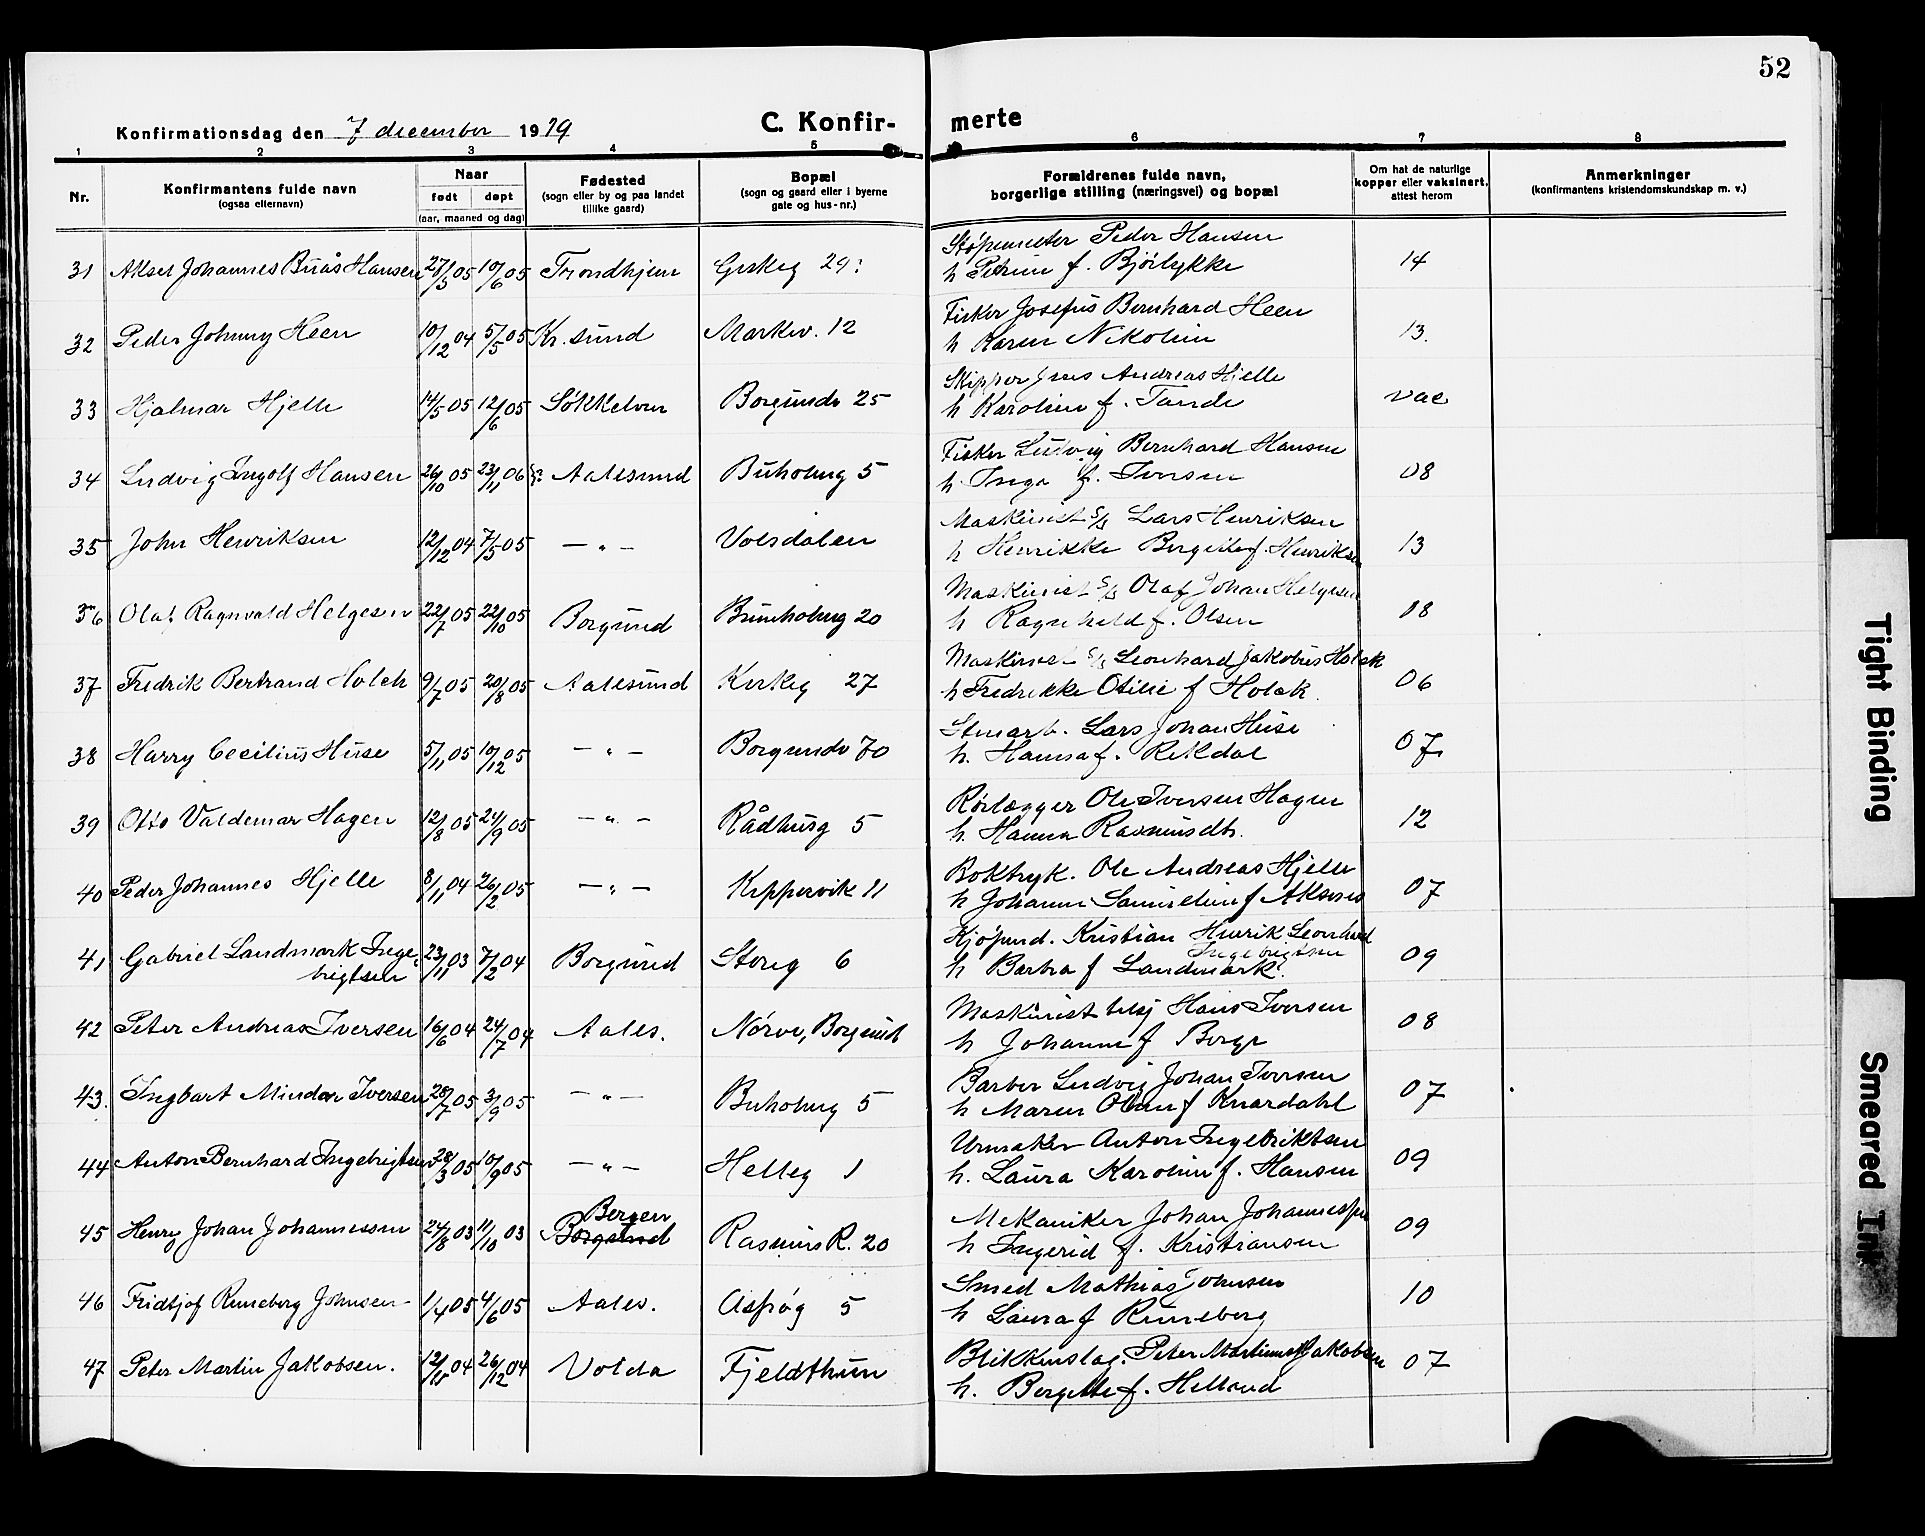 52
Konfirmationsdag den 7 december 1919 C. Konfir- merte
1 2 3 4 5 6 7 8
Nr. Konfirmantens fulde navn (ogsaa efternavn) Naar født døpt (aar, maaned og dag) Fødested (sogn eller by og paa landet tillike gaard) Bopæl (sogn og gaard eller i byerne gate og hus-nr.) Forældrenes fulde navn, borgerlige stilling (næringsvei) og bopæl Om hat de naturlige kopper eller vaksinert, attest herom Anmerkninger (konfirmantens kristendomskundskap m. v.)
31 Aksel Johannes Buås Hansen 27/5 05 10/6 05 Trondhjem 29 Peder Hansen
h Petrine f. Bjørlykke 14
32 Peder Johnny Heen 10/12 04 5/5 05 Kr. sund Markv. 12 Fisker Josefus Bernhard Heen
h Karen Nikoline 13.
33 Hjalmar Hjelle 14/5 05 12/6 05 Søkkelven Borgundv 25 Skipper Jens Andreas Hjelle
h Karoline f. Tande vac
34 Ludvig Ingolf Hansen 26/10 05 23/11 06 Aalesund Buholmg 5 Fisker Ludvig Bernhard Hansen
h. Inga f. Iversen 08
35 John Henriksen 12/12 04 7/5 05 — " — Volsdalen Maskinist S/S Lars Henriksen
h Henrikke Bergitte f. Henriksen 13
36 Olaf Ragnvald Helgesen 22/7 05 22/10 05 Borgund Bunholmg 20 Maskinist S/S Olaf Johan Helgesen
h Ragnhild f. Olsen 08
37 Fredrik Bertrand Holck 9/7 05 20/8 05 Aalesund Kirkeg 27 Maskinist S/S Leonhard Jakobus Holck
h Fredrikke Otilie f Holck. 06
38 Harry Cecilius Huse 5/11 05 10/12 05 — " — Borgundv 70 Stenarb. Lars Johan Huse
h. Hanna f. Rekdal 07
39 Otto Valdemar Hagen 12/8 05 24/9 05 — " — Rådhusg 5 Rørlægger Ole Iversen Hagen
h. Hanna Rasmusdtr. 12
40 Peder Johannes Hjelle 8/11 04 26/2 05 — " — Kippervik 11 Boktryk. Ole Andreas Hjelle
h Johanne Samueline f Aksnes 07
41 Gabriel Landmark Inge- 23/11 03 7/2 04 Borgund Storg 6 Kjøpmd. Kristian Henrik Leonhard
brigtsen Ingebrigtsen
h Barbra f Landmark. 09
42 Peter Andreas Iversen 16/6 04 24/7 04 Aales. Nørve, Borgund Maskinist Hans Iversen
h Johanne f Berge 08
43. Ingbart Mindor Iversen 28/7 05 3/9 05 — " — Buholmg 5 Barber Ludvig Johan Iversen
h Maren Oline f Knardahl 07
44 Anton Bernhard Ingebrigtsen 28/3 05 10/9 05 — " — Helleg 1 Urmaker Anton Ingebriktsen
h. Laura Karoline f. Hansen 09
45 Henry Johan Johannessen 24/8 03 11/10 03 Bergen Borgund Rasmus R. 20 Mekaniker Johan Johannessen
h Ingerid f. Kristiansen 09
46 Fridtjof Runeberg Johnsen 1/4 05 4/6 05 Aales. Aspøg 5 Smed Mathias Johnsen
h Laura f Runeberg 10
47 Peter Martin Jakobsen. 12/11 04 26/12 04 Volda Fjeldthun Blikkenslag. Peter Martinus Jakobsen
h. Bergitte f. Helland 07
Tight Binding
Smeared Ink